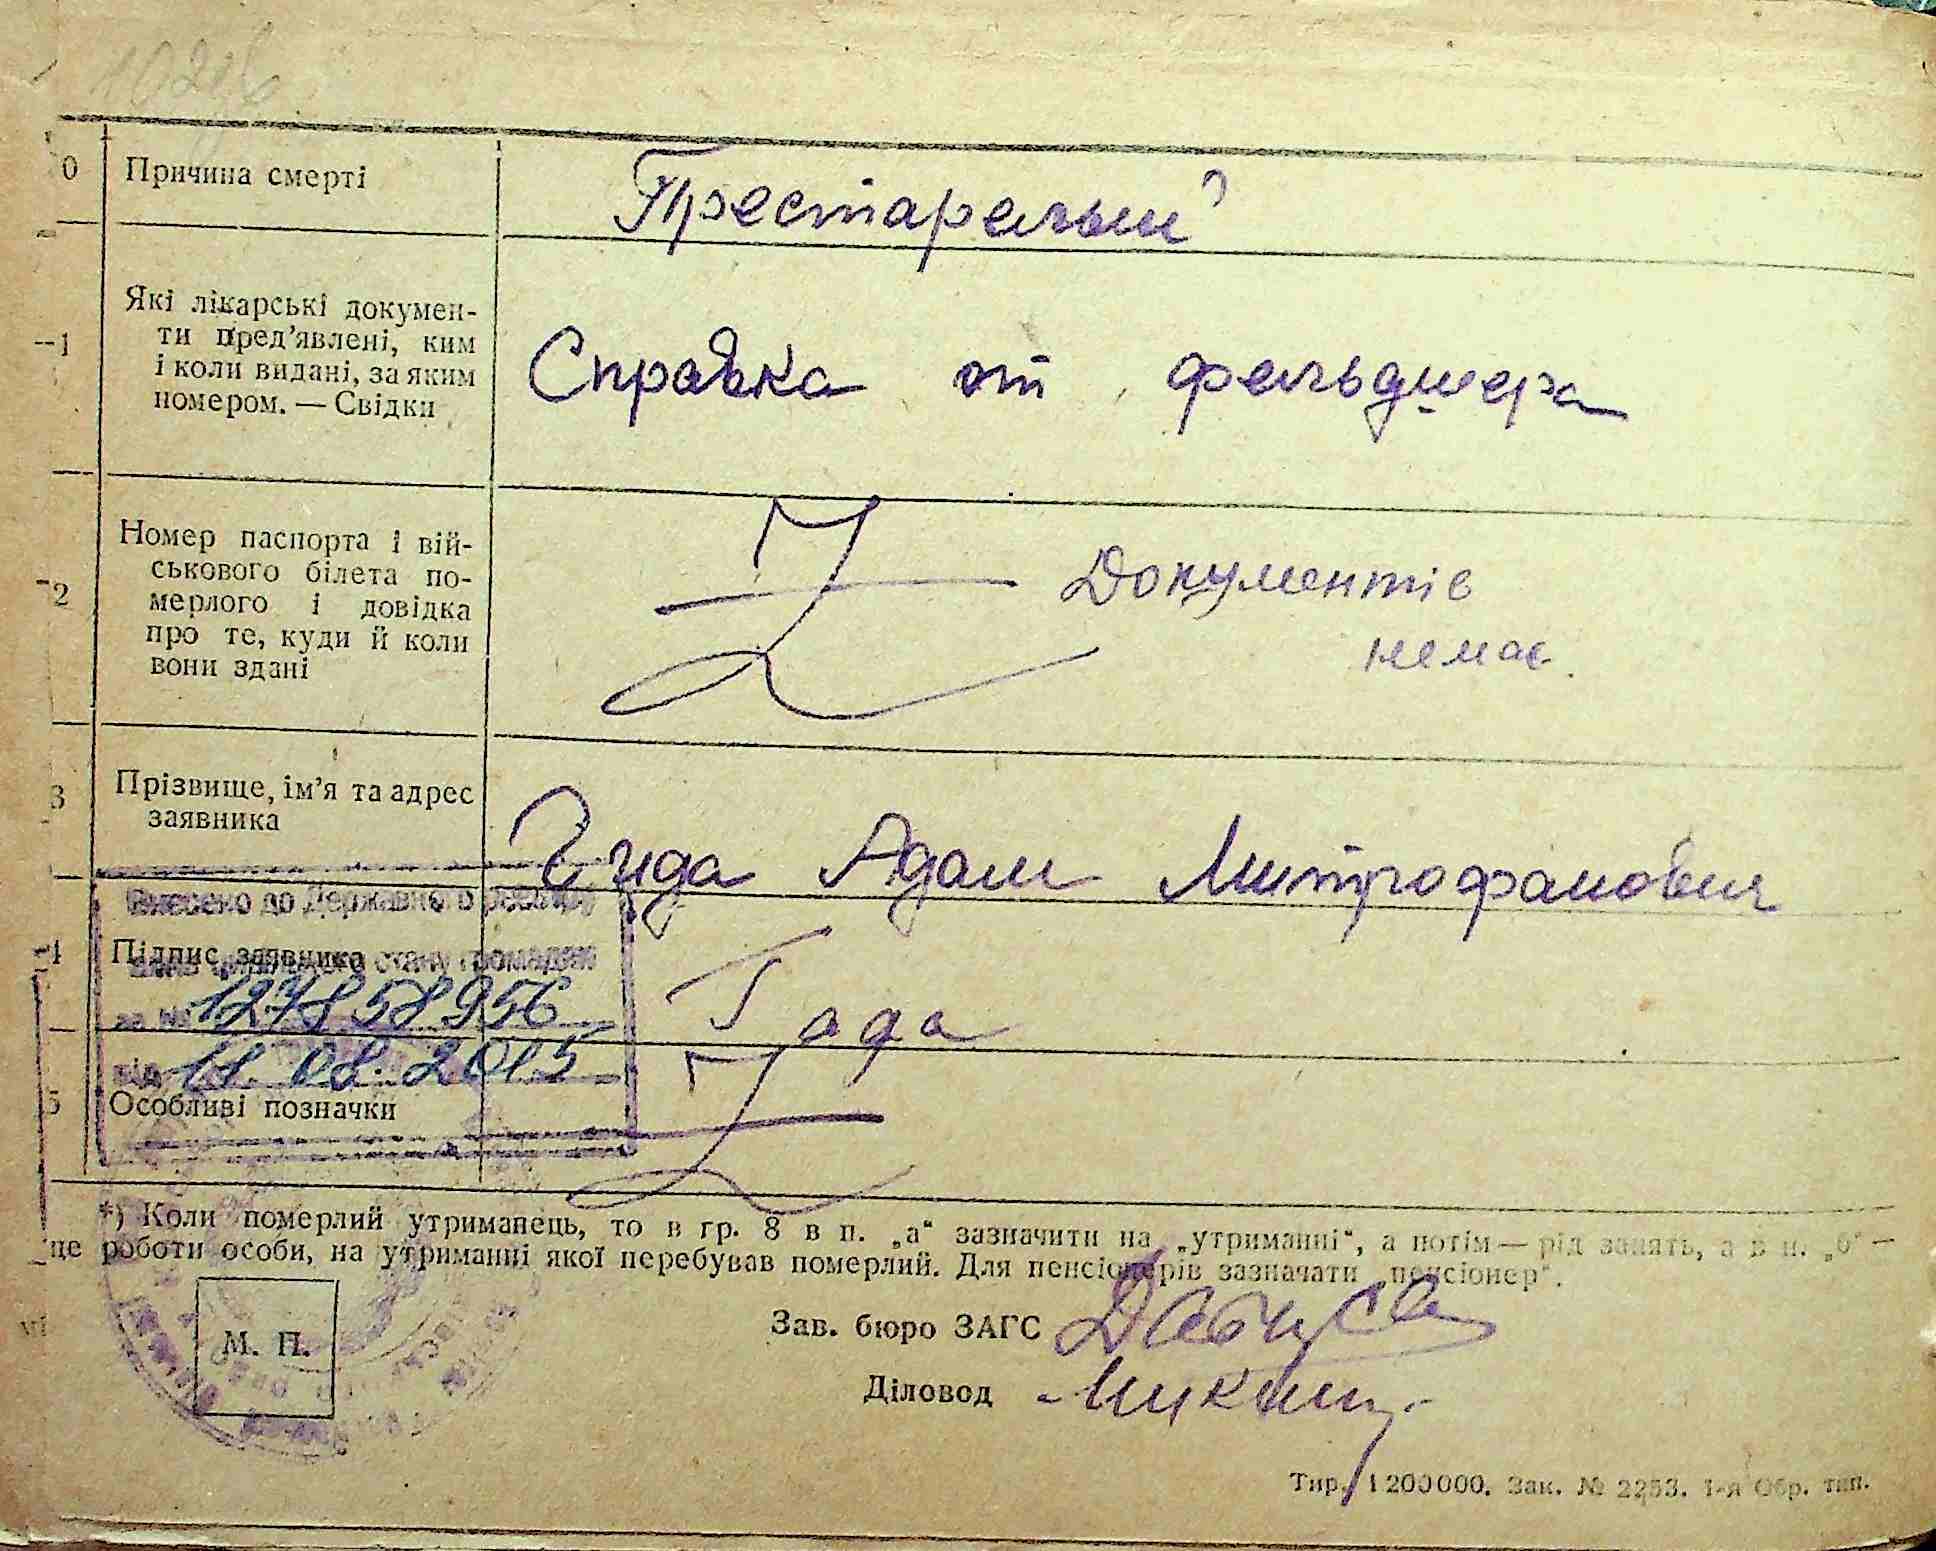 0 Причина смерті Престарелый
--1 Які лікарські докумен-
ти пред’явлені, ким
і коли видані, за яким
номером. — Свідки
Справка от фельдшера
2 Номер паспорта і вій-
ськового білета по-
мерлого і довідка
про те, куди й коли
вони здані
Документів
немає.
3 Прізвище, ім’я та адрес
заявника
Адам Митрофанович
Внесено до Державного реєстру
Підпис заявника
стану громадян
за № 127858956
від 11.08.2015
5 Особливі позначки
*) Коли померлий утриманець, то в гр. 8 в п. „а“ зазначити на „утриманні“, а потім — рід занять, а в п. „б“ —
це роботи особи, на утриманні якої перебував померлий. Для пенсіонерів зазначати „пенсіонер“.
М. П.
Зав. бюро ЗАГС
Діловод
Тир. 1 200 000. Зак. № 2253. 1-я Обр. тип.